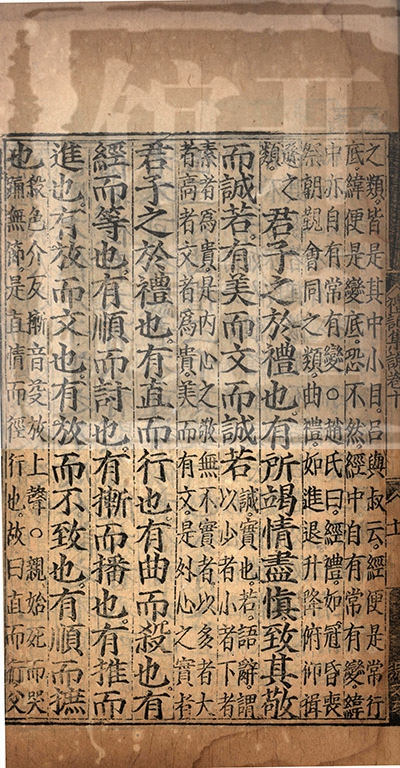 之類。皆是其中小目。呂與叔云。經便是常行
底緯便是變底。恐不然。經中自有常有變。緯
中亦自有常有變○趙氏曰。經禮。如冠昏喪
祭朝覲會同之類。曲禮如進退升降俯仰揖
遜之
類。
君子之於禮也。有所竭情盡慎。致其敬
而誠若。有美而文而誠若
誠實也。若。語辭。謂
以少者小者下者
素者為貴。是內心之敬無不實者。以多者大
者高者文者為貴。美而有文。是外心之實者
君子之於禮也。有直而行也。有曲而殺也。有
經而等也。有順而討也。有摲而播也。有推而
進也。有放而文也。有放而不致也。有順而摭
也
殺色介反摲音芟放上聲○親始死而哭
踊無節。是直情而徑行也。故曰直而行父